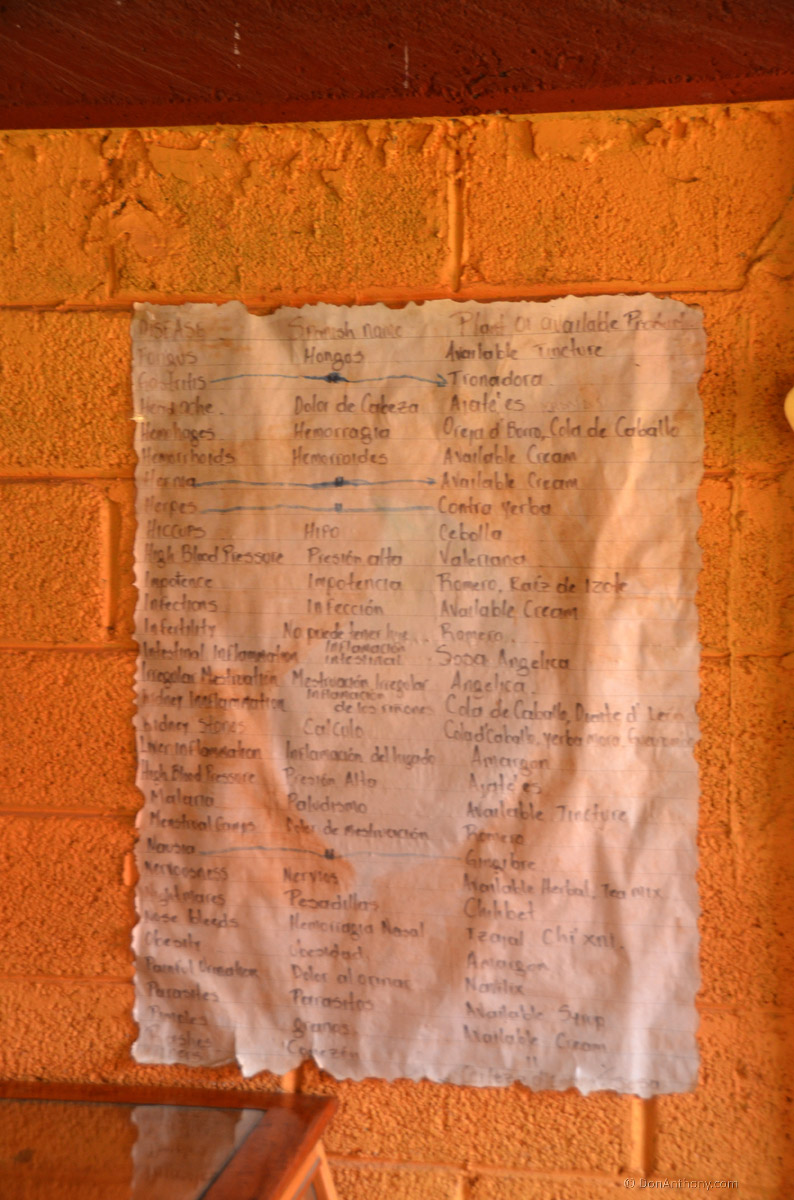 DISEASE Spanish name Plant or available Products
Fungus Hongos Available Tincture
Gastritis Tronadora
Headache. Dolor de Cabeza Ajate'es
Hemorragia Oreja d' Burro, Cola de Caballo
Hemorrhoids Hemorroides Available Cream
Hernia Available Cream
Herpes Contra yerba
Hiccups Hipo Cebolla
High Blood Pressure Presión alta Valeriana
Impotence Impotencia Romero, Raíz de Izote
Infections Infección Available Cream
Infertility No puede tener Romero.
Intestinal Inflammation Inflamación intestinal Sosa Angelica
Irregular Mestruación Irregular Angelica.
Kidney Inflammation Inflamación de los riñones Cola de Caballo, Diente d' León
Kidney Stones Calculo Cola d' Caballo, yerba mora,
Liver Inflammation Inflamación del higado Amargon
High Blood Pressure Presión Alta Ajate'es
Malaria Paludismo Available Tincture
Menstrual Dolor de mestruación Romero
Nausia Gingibre
Nervousness Nervios Available Herbal Tea mix
Nightmares Pesadillas
Nose bleeds Hemorragia Nasal Tzajal Chi'xni.
Obesity Obesidad Amargon
Painful Urination Dolor al orinar
Parasites Parasitos Available Syrup
Pimples granos Available Cream
Rashes "
© DonAnthony.com